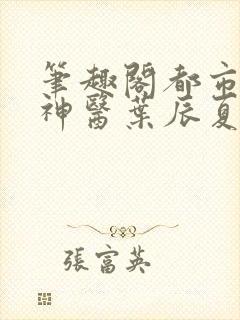 筆趣閣都市
神醫葉辰夏
張富英